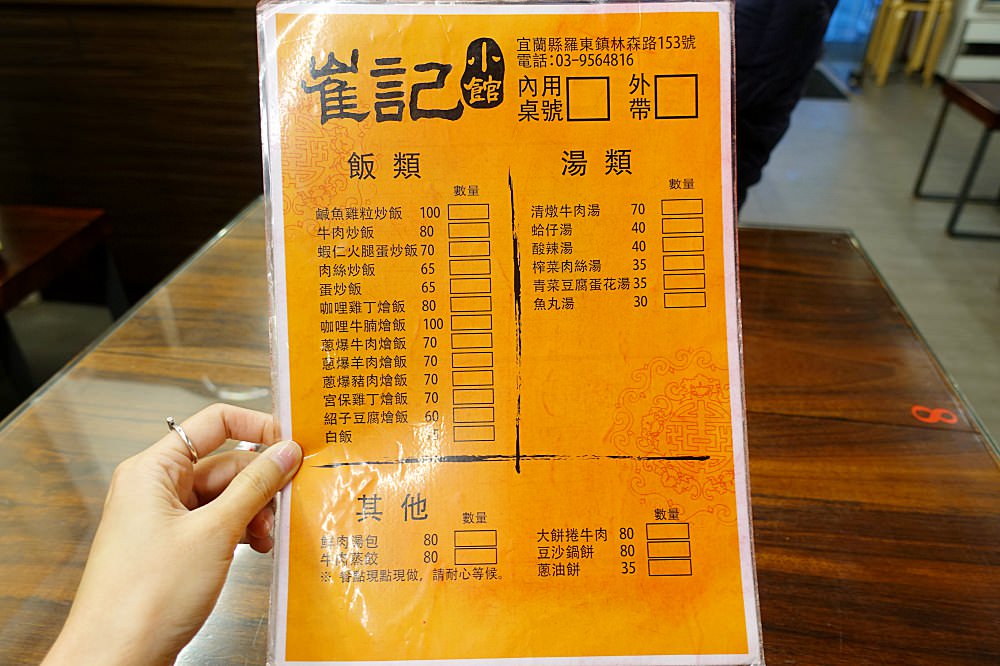 崔記小館
宜蘭縣羅東鎮林森路153號
電話:03-9564816
內用桌號
外帶
飯類
數量
鹹魚雞粒炒飯 100
牛肉炒飯 80
蝦仁火腿蛋炒飯 70
肉絲炒飯 65
蛋炒飯 65
咖哩雞丁燴飯 80
咖哩牛腩燴飯 100
蔥爆牛肉燴飯 70
蔥爆羊肉燴飯 70
蔥爆豬肉燴飯 70
宮保雞丁燴飯 70
紹子豆腐燴飯 60
白飯
湯類
數量
清燉牛肉湯 70
蛤仔湯 40
酸辣湯 40
榨菜肉絲湯 35
青菜豆腐蛋花湯 35
魚丸湯 30
其他
數量
鮮肉湯包 80
牛肉蒸餃 80
※ 餐點現點現做，請耐心等候。
數量
大餅捲牛肉 80
豆沙鍋餅 80
蔥油餅 35
8